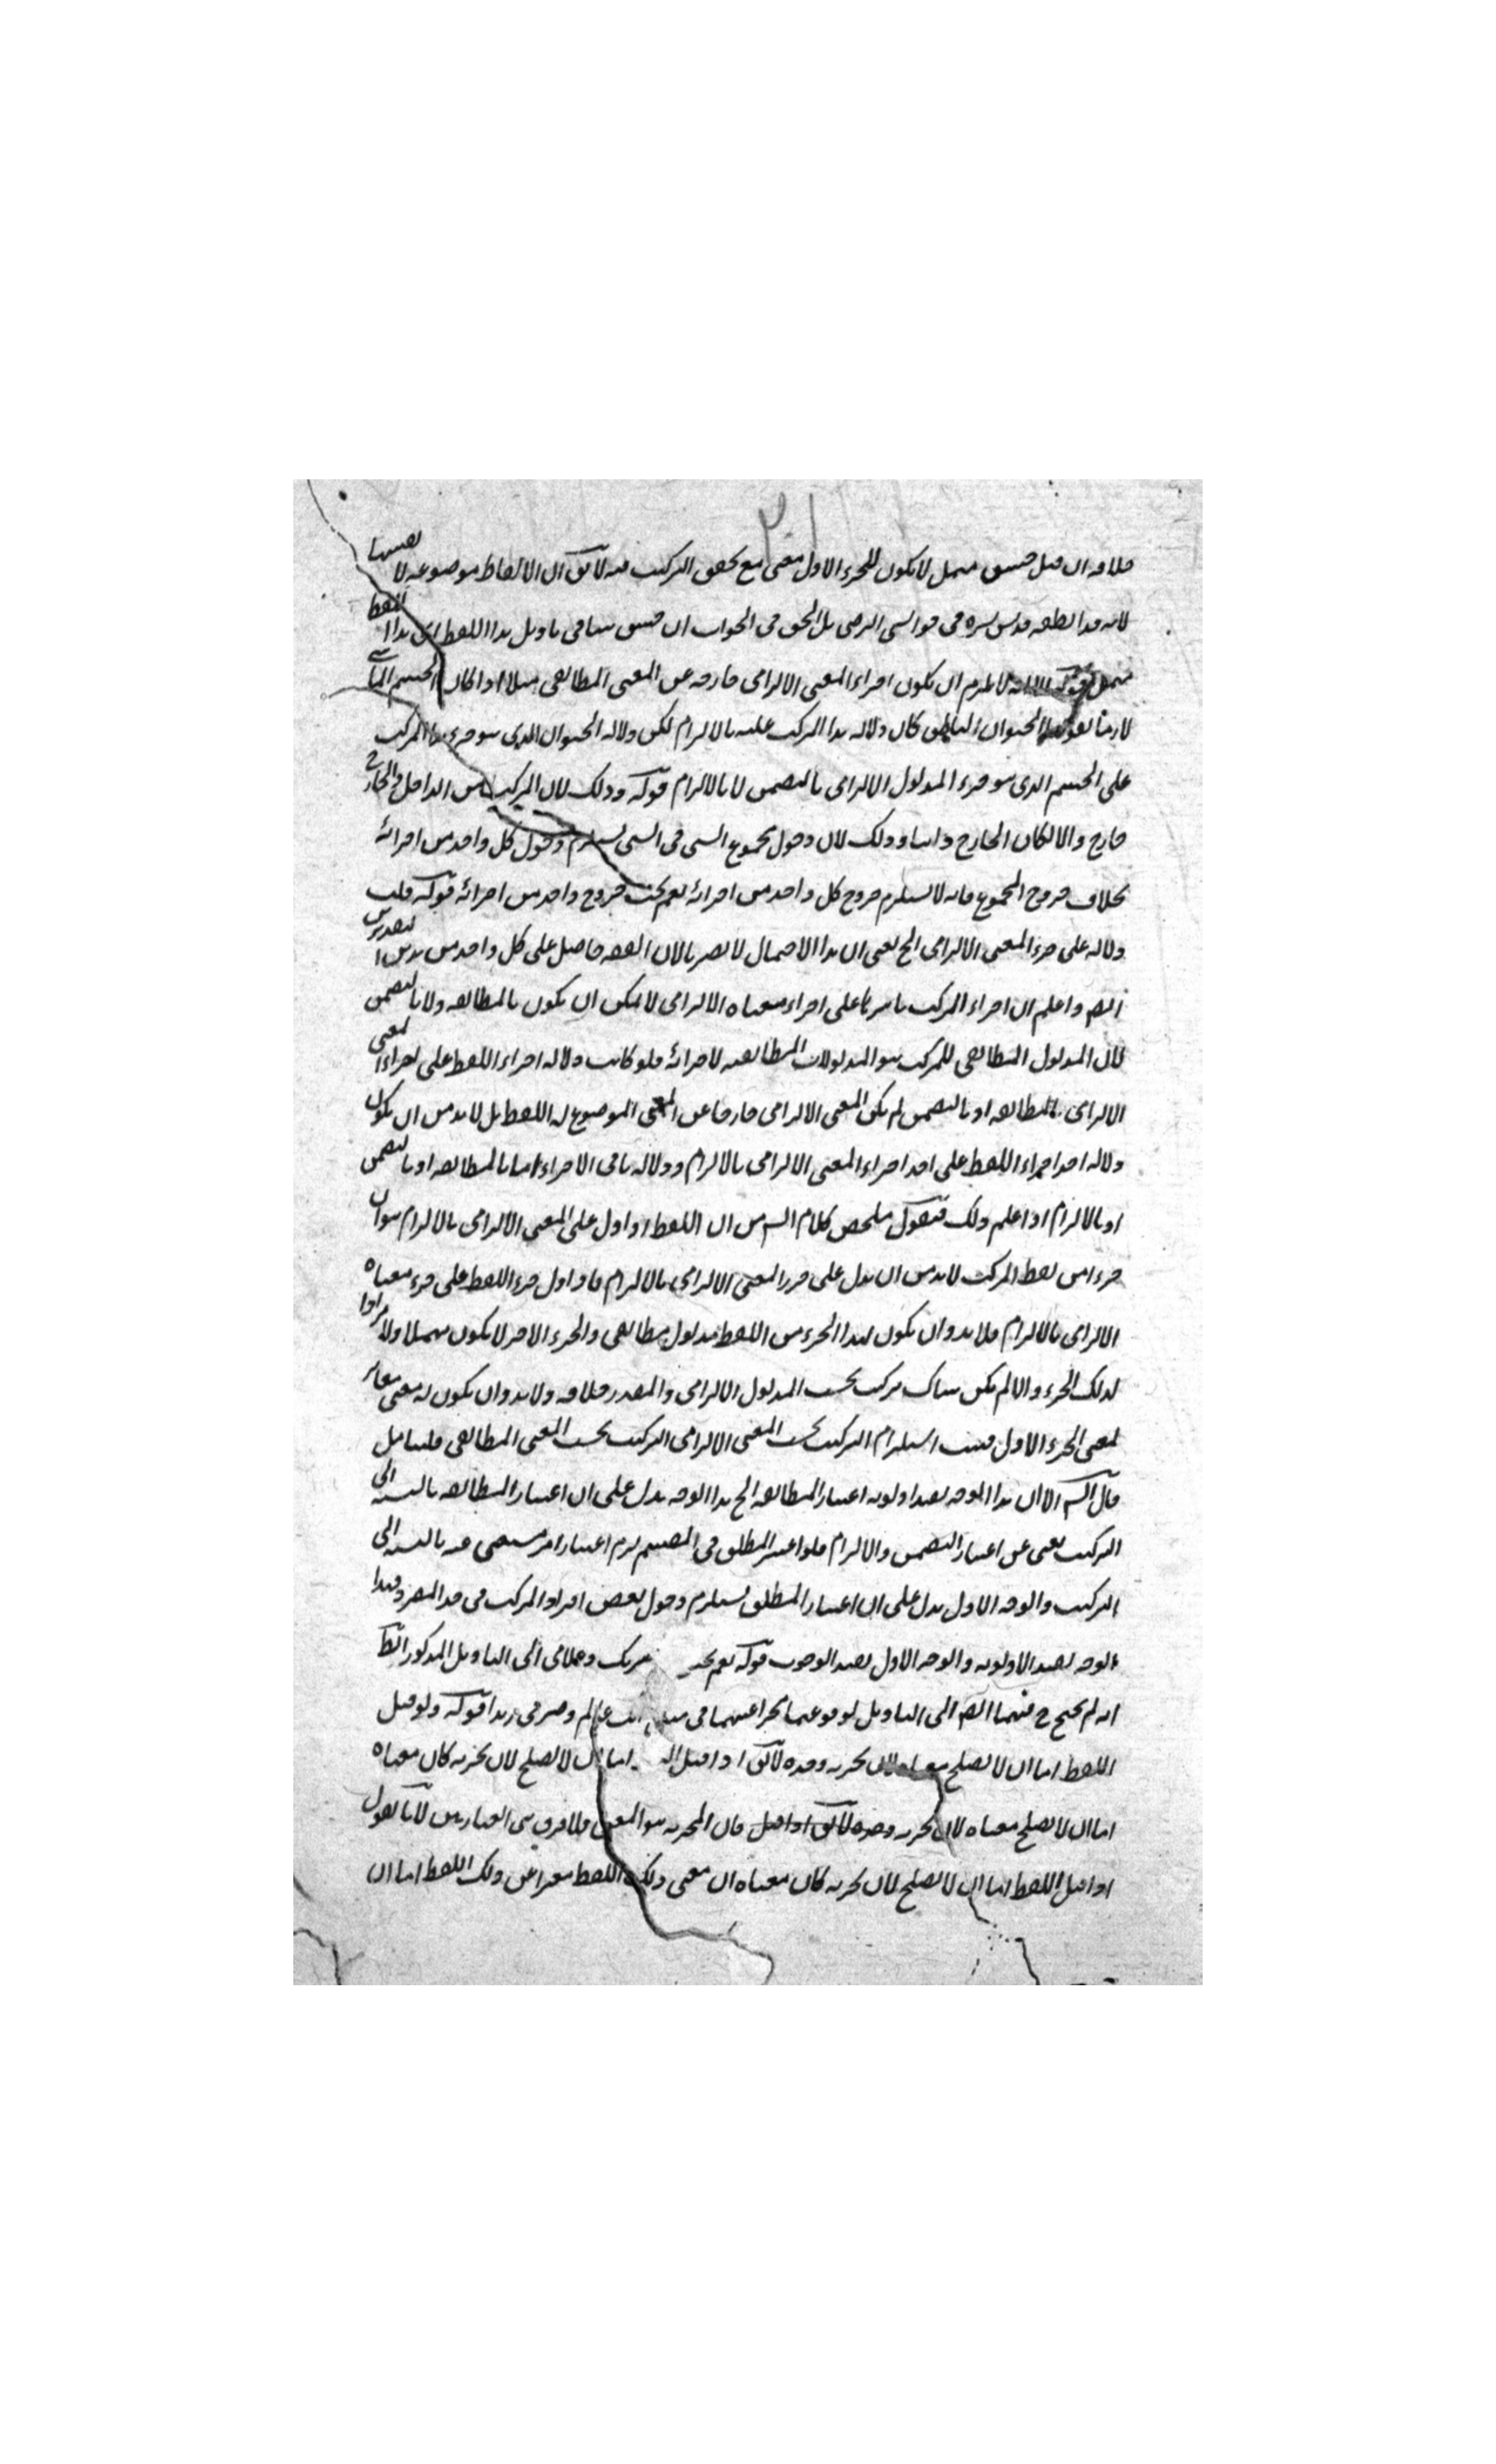 خلافه ان قيل جسق مهمل لا يكون للجزء الاول معنى مع تحقق التركيب فيه لا يق ان الالفاظ موضوعة لانفسها
لانه قد ابطله قدس سره فى حواشى الرضى بل الحق فى الجواب ان جسق هنا فى تاويل هذا اللفظ اى هذا اللفظ
مهمل قوله لا يلزم ان يكون اجزاء المعنى الالتزامى خارجه عن المعنى المطابقى مثلا اذا كان الجسم الماشى
لازما لقولنا الحيوان الناطق كان دلالة هذا المركب عليه بالالتزام لكن دلالة الحيوان الذى هو جزء هذا المركب
على الجسم الذى هو جزء المدلول الالتزامى بالتضمن لا بالالتزام قوله وذلك لان المركب من الداخل والخارج
خارج والا لكان الخارج داخلا وذلك لان دخول مجموع الشى فى الشى يستلزم دخول كل واحد من اجزائه
بخلاف خروج المجموع فانه لا يستلزم خروج كل واحد من اجزائه نعم يجب خروج واحد من اجزائه قوله قلت
دلالة على جزء المعنى الالتزامى الخ يعنى ان هذا الاحتمال لا يضرنا لان القصد حاصل على كل واحد من هذين التقديرين
ايضا واعلم ان اجزاء المركب باسرها على اجزاء معناه الالتزامى لا يمكن ان يكون بالمطابقه ولا بالتضمن
لان المدلول المطابقى للمركب هو المدلولات المطابقيه لاجزائه فلو كانت دلالة اجزاء اللفظ على اجزاء المعنى
الالتزامى بالمطابقه او بالتضمن لم يكن المعنى الالتزامى خارجا عن المعنى الموضوع له اللفظ بل لا بد من ان يكون
دلالة احد اجزاء اللفظ على احد اجزاء المعنى الالتزامى بالالتزام ودلالة باقى الاجزاء اما بالمطابقه او بالتضمن
او بالالتزام اذا علم ذلك فنقول ملخص كلام الشـ من ان اللفظ اذا دل على المعنى الالتزامى بالالتزام هو ان
جزءا من لفظ المركب لا بد من ان يدل على جزء المعنى الالتزامى بالالتزام فاذا دل جزء اللفظ على جزء معناه
الالتزامى بالالتزام فلا بد وان يكون لهذا الجزء من اللفظ مدلول مطابقى والجزء الاخر لا يكون مهملا ولا مرادفا
لذلك الجزء والا لم يكن هناك مركب بحسب المدلول الالتزامى والمقدر خلافه ولا بد وان يكون له معنى مغاير
لمعنى الجزء الاول فثبت استلزام التركيب بحسب المعنى الالتزامى التركيب بحسب المعنى المطابقى فليتامل
قال الشـ الا ان هذا الوجه يفيد اولوية اعتبار المطابقه الخ هذا الوجه يدل على ان اعتبار المطابقه بالنسبه الى
التركيب يغنى عن اعتبار التضمن والالتزام فلو اعتبر المطلق فى التقسيم لزم اعتبار امر مستغنى عنه بالنسبه الى
التركيب والوجه الاول يدل على ان اعتبار المطلق يستلزم دخول بعض افراد المركب فى حد المفرد فهذا
الوجه يفيد الاولويه والوجه الاول يفيد الوجوب قوله نعم يحتـ ... ضربك وغلامى الى التاويل المذكور الظ
انه لم يحتج ح فيهما ايضا الى التاويل لوقوعهما مخبرا عنهما فى ... عالم وضر فى زيدا قوله ولو قيل
اللفظ اما ان لا يصلح معناه لان يخبر به وحده لا يق اذا قيل ... اما ان لا يصلح لان يخبر به كان معناه
اما ان لا يصلح معناه لان يخبر به وحده لا يق اذا قيل فان المخبر به هو المعنى فلا فرق بين العبارتين لانا نقول
اذا قيل اللفظ اما ان لا يصلح لان يخبر به كان معناه ان معنى ذلك اللفظ معبرا عن ذلك اللفظ اما ان